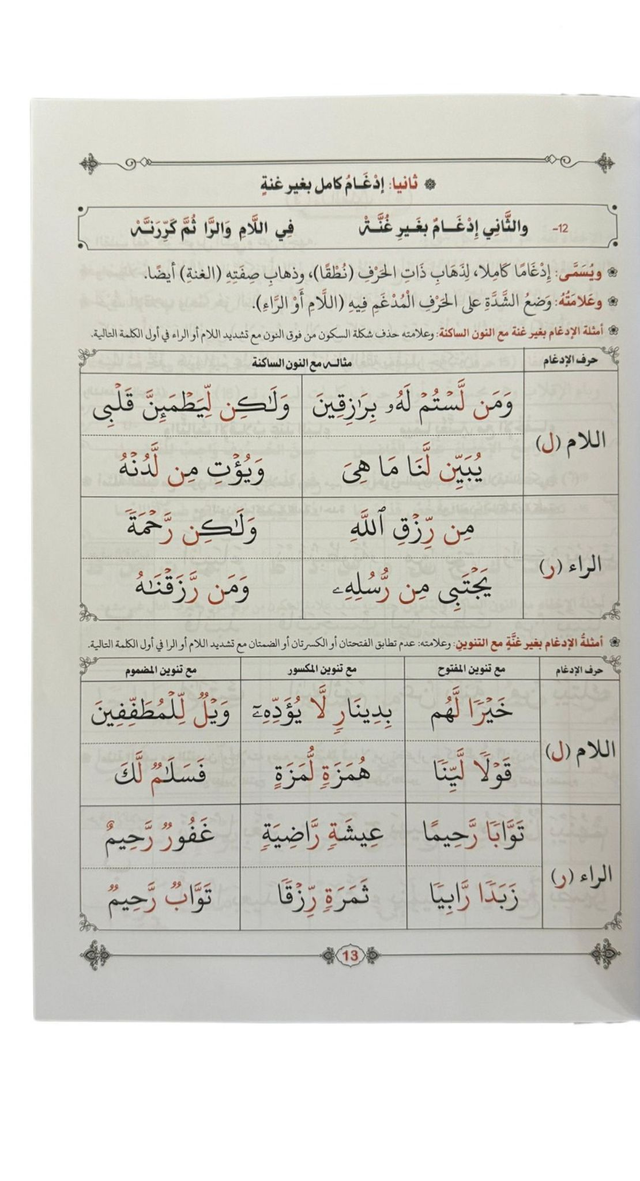 ثانيا: إدْغَامُ كامل بغير غنةٍ
12- والثَّانِي إِدْغَــامٌ بغَيرِ غُنَّـةْ فِي اللَّامِ وَالرَّا ثُمَّ كَرِّرَنَّـهْ
ويُسَمَّى: إِدْغَامًا كَامِلًا، لِذَهَابِ ذَاتِ الحَرْفِ (نُطْقًا)، وذهابِ صِفَتِهِ (الغنةِ) أيضًا.
وعَلامَتُهُ: وَضعُ الشَّدَّةِ على الحَرْفِ الْمُدْغَمِ فِيهِ (اللَّامِ أَوْ الرَّاءِ).
أمثلة الإدغام بغير غنة مع النون الساكنة: وعلامته حذف شكلة السكون من فوق النون مع تشديد اللام أو الراء في أول الكلمة التالية.
حرف الإدغام مثالـه مع النون الساكنة
اللام (ل) وَمَن لَّسْتُمْ لَهُۥ بِرَٰزِقِينَ وَلَٰكِن لِّيَطْمَئِنَّ قَلْبِى
يُبَيِّن لَّنَا مَا هِىَ وَيُؤْتِ مِن لَّدُنْهُ
الراء (ر) مِن رِّزْقِ ٱللَّهِ وَلَٰكِن رَّحْمَةً
يَجْتَبِى مِن رُّسُلِهِۦ وَمَن رَّزَقْنَٰهُ
أمثلةُ الإدغام بغير غنَّةٍ مع التنوين: وعلامته: عدم تطابق الفتحتان أو الكسرتان أو الضمتان مع تشديد اللام أو الرا في أول الكلمة التالية.
حرف الإدغام مع تنوين المفتوح مع تنوين المكسور مع تنوين المضموم
اللام (ل) خَيْرًا لَّهُم بِدِينَارٍ لَّا يُؤَدِّهِۦٓ وَيْلٌ لِّلْمُطَفِّفِينَ
قَوْلًا لَّيِّنًا هُمَزَةٍ لُّمَزَةٍ فَسَلَٰمٌ لَّكَ
الراء (ر) تَوَّابًا رَّحِيمًا عِيشَةٍ رَّاضِيَةٍ غَفُورٌ رَّحِيمٌ
زَبَدًا رَّابِيًا ثَمَرَةٍ رِّزْقًا تَوَّابٌ رَّحِيمٌ
13